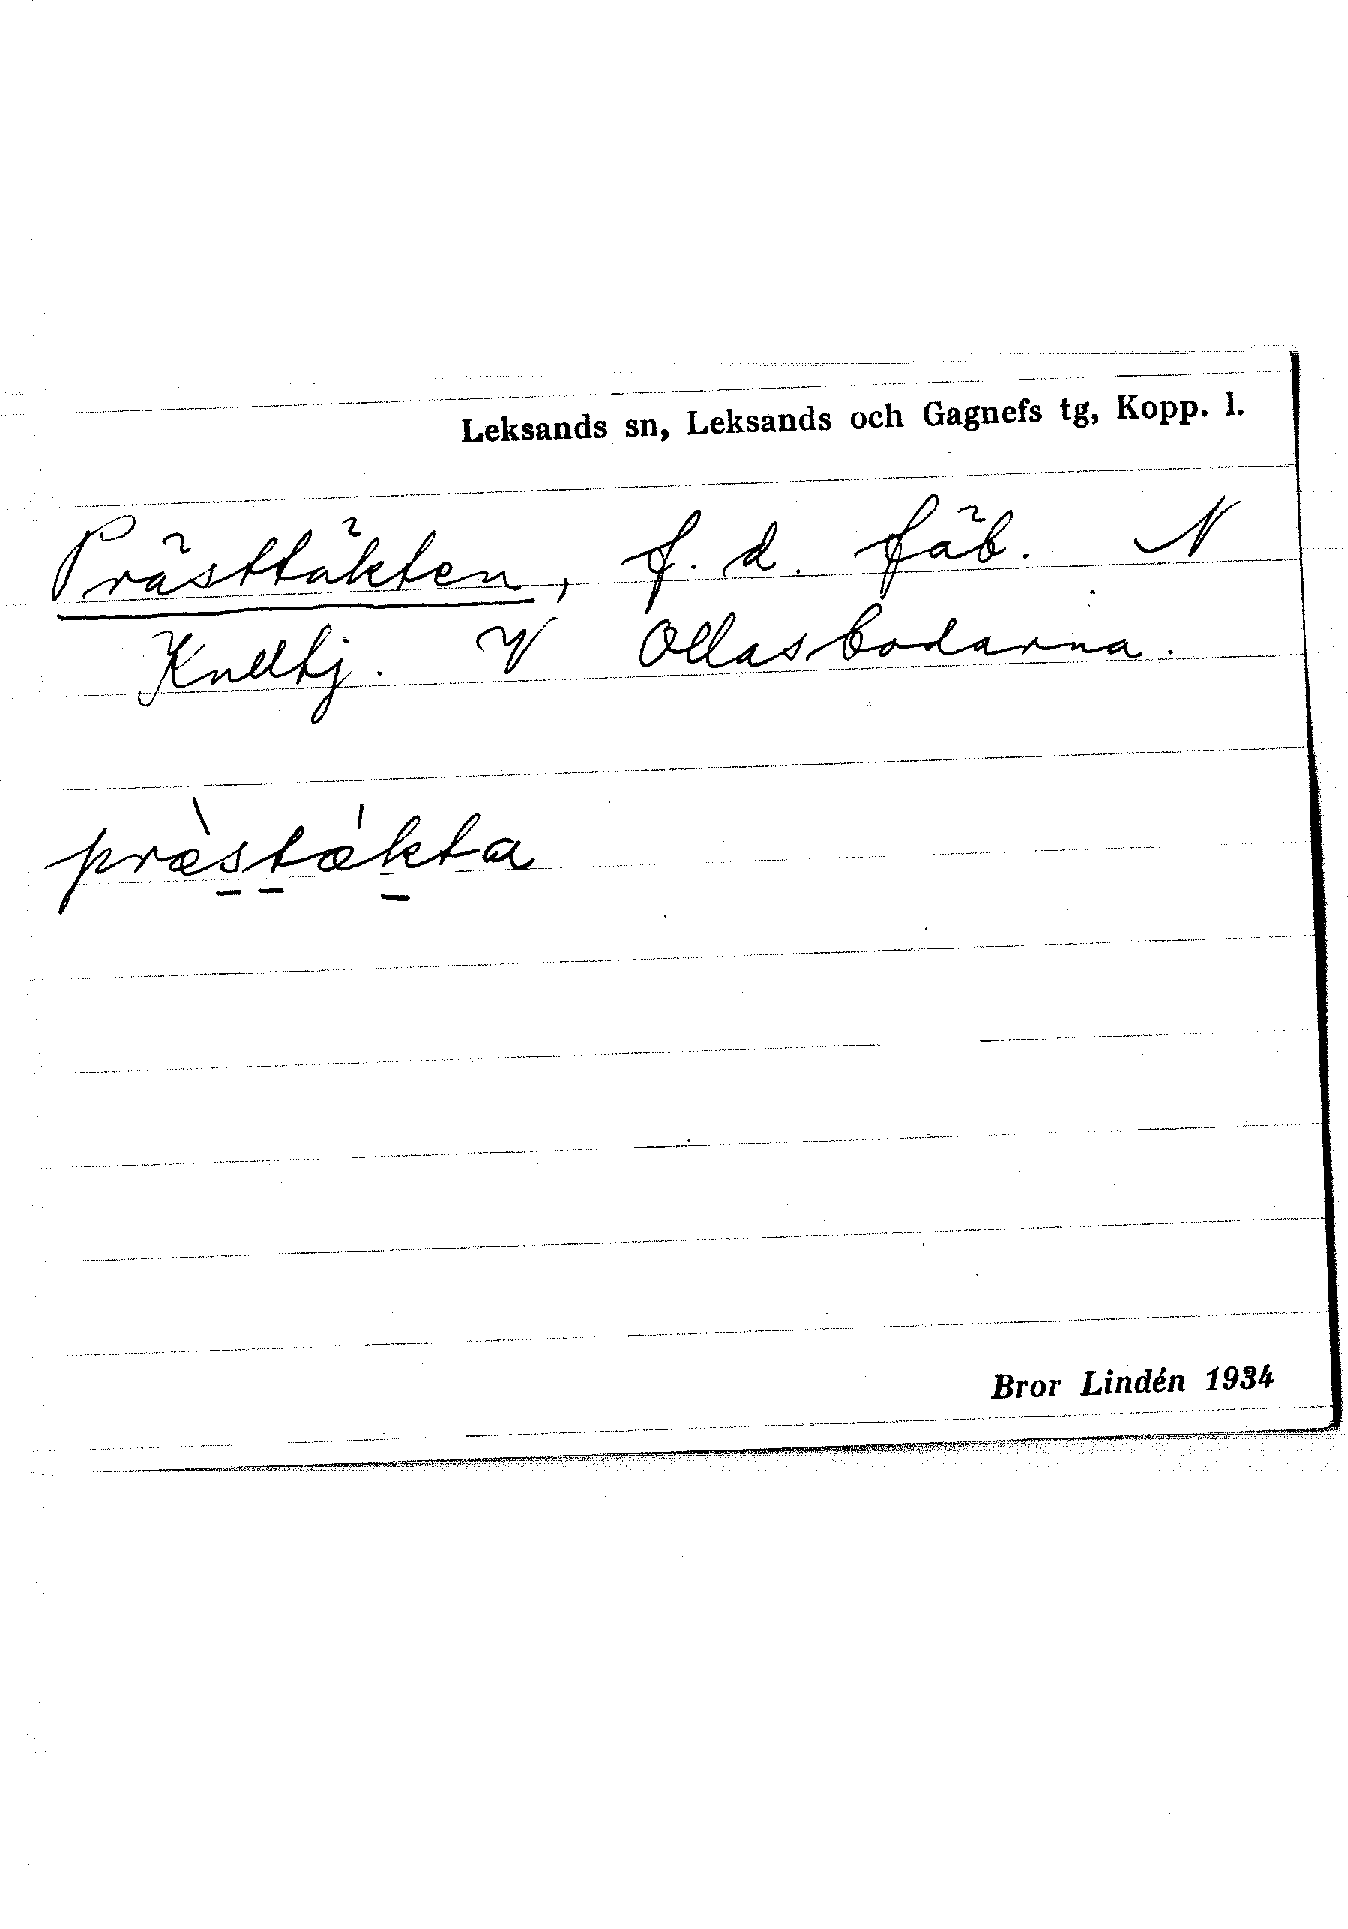 Leksands sn, Leksands och Gagnefs tg, Kopp. l.
Prästtäkten, f. d. fäb. N
V Ollasbodarna.
præ̀stǽkta
Bror Lindén 1934